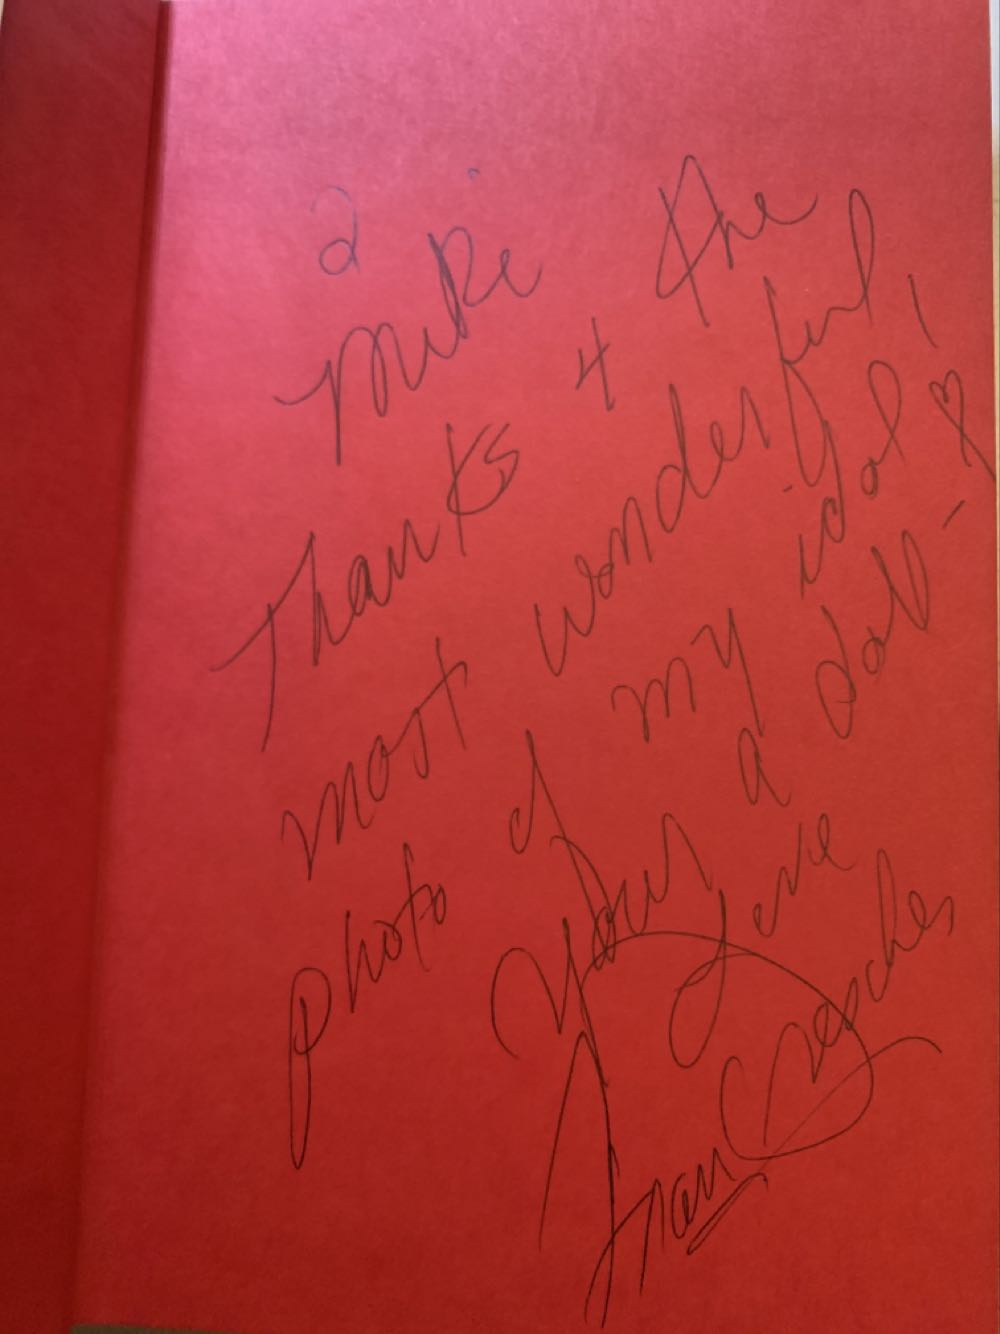 2
Mike
Thanks 4 the
most wonderful
photo of my idol!
Your a doll-
Love
Fran Drescher